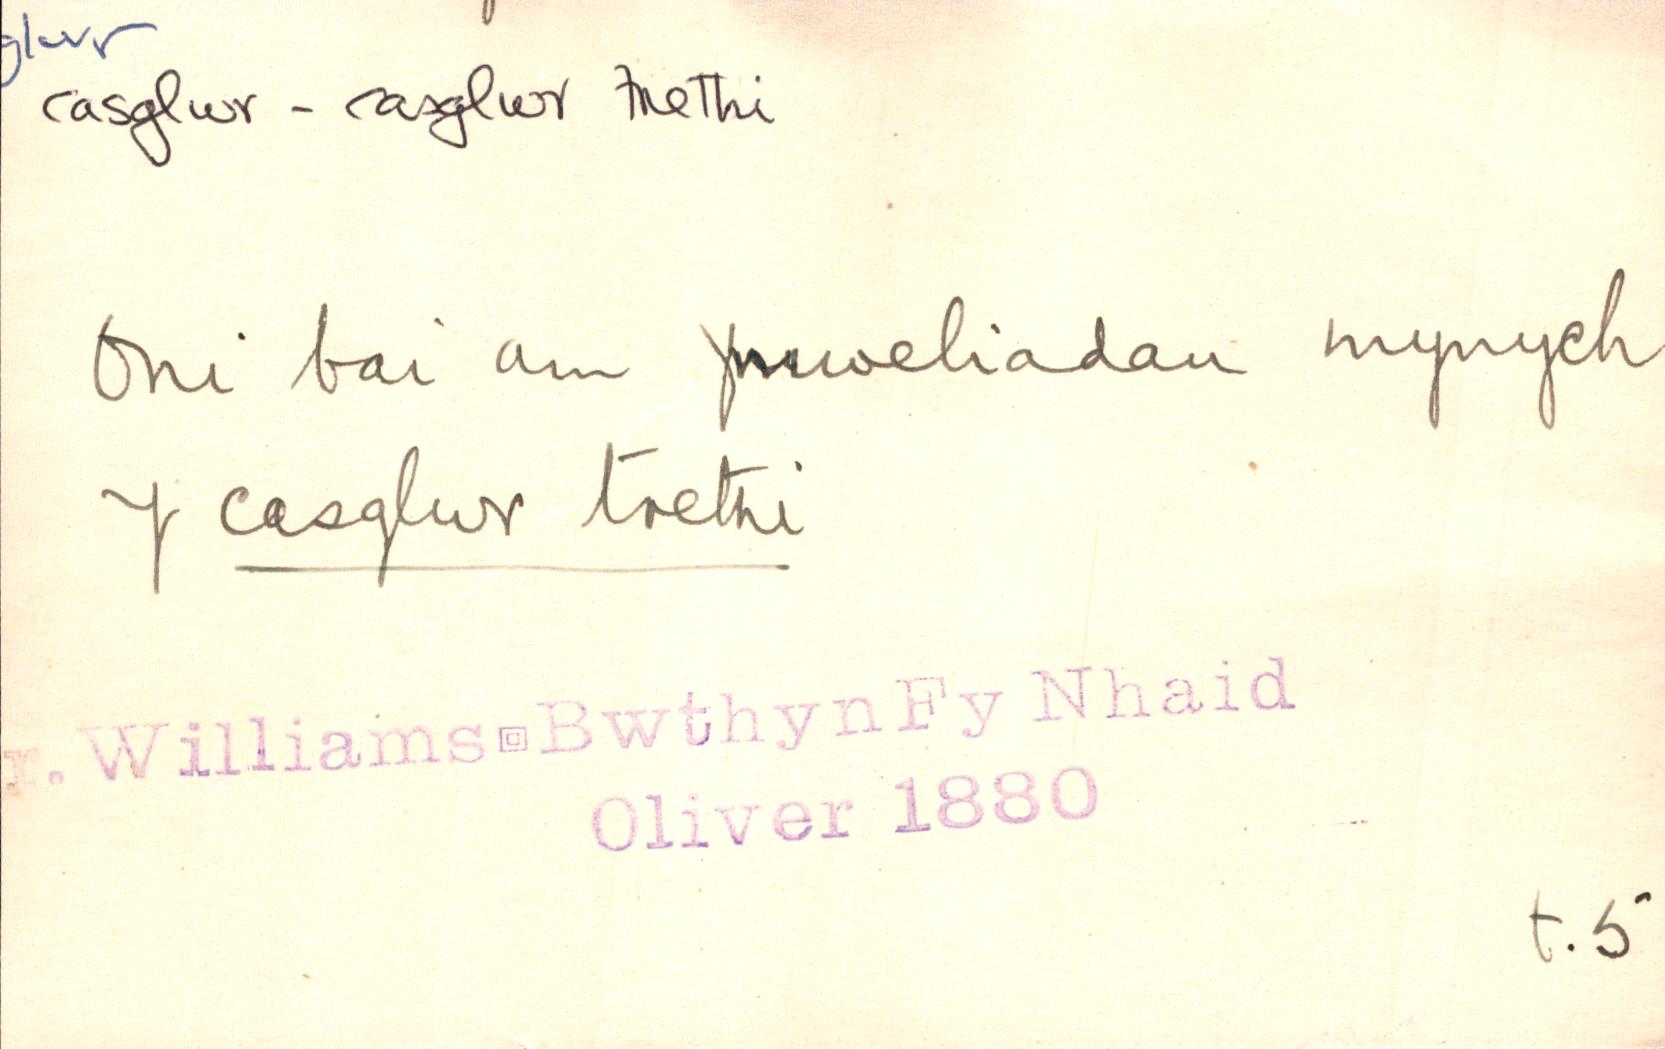 glwr
casglwr - casglwr trethi
Oni bai am ymweliadau mynych
y casglwr trethi
r. Williams Bwthyn Fy Nhaid
Oliver 1880
t. 5